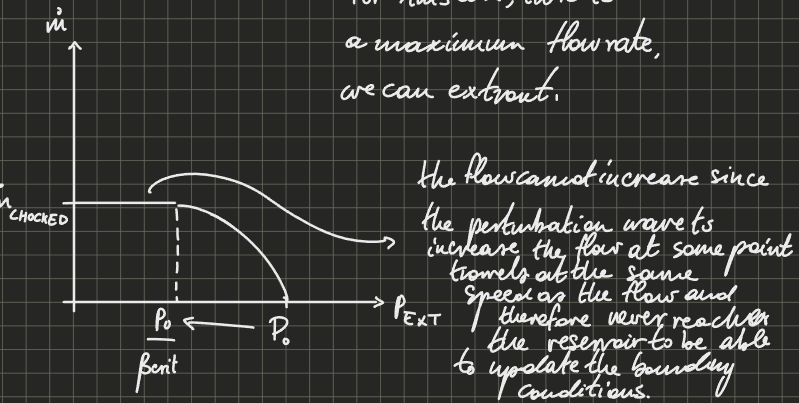 ṁ
a maximum flow rate,
we can extract.
the flow cannot increase since
the perturbation wave to
increase the flow at some point
travels at the same
speed as the flow and
therefore never reaches
the reservoir to be able
to update the boundary
conditions.
CHOCKED
P₀
βcrit
P₀
P_EXT